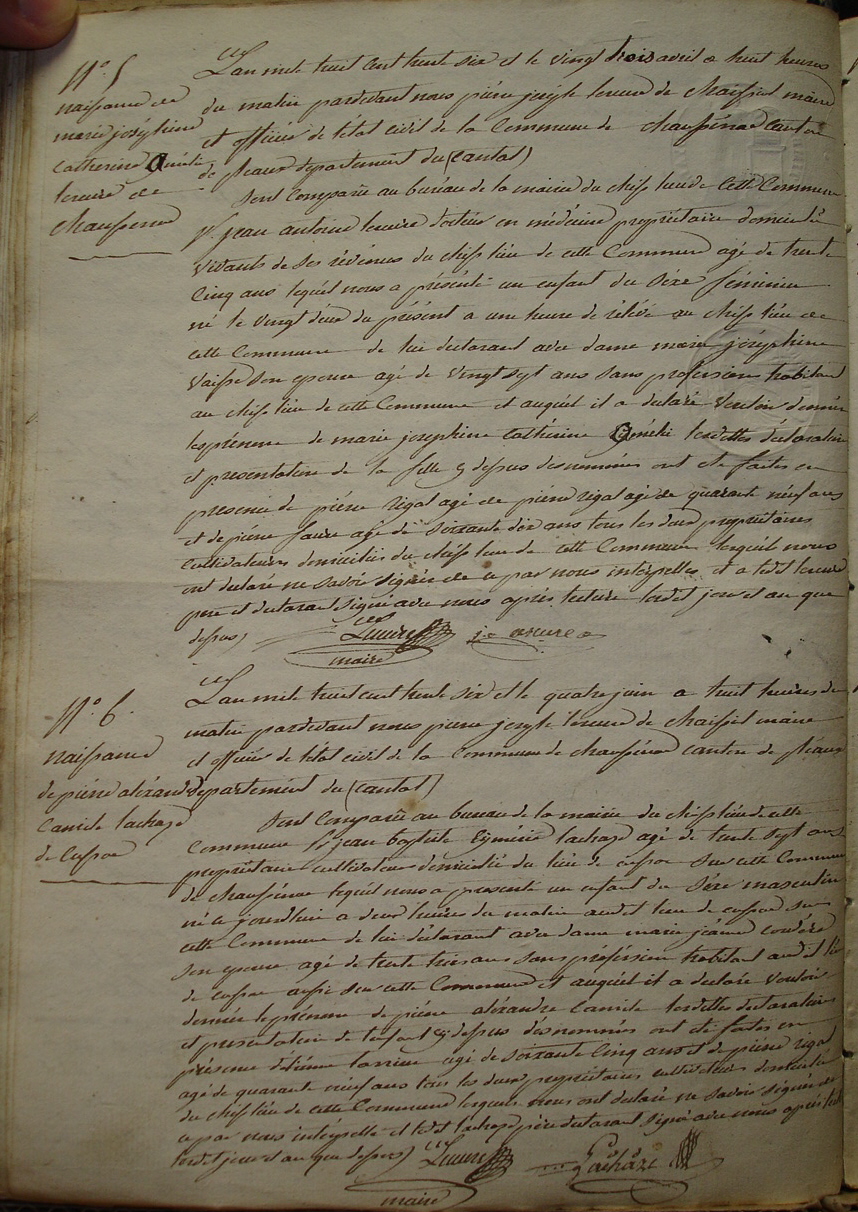 N.° 5
naissance de
marie joséphine
Catherine
de
Chaussenac
L'an mile huit cent trente six et le vingt trois avril a huit heures
du matin pardevant nous pierre joseph de Chaissial maire
et officier de l'état civil de la Commune de Chaussenac canton
de pleaux département du (Cantal)
Sont Comparu au bureau de la mairie du chef lieu de cette Commune
Sr jean antoine docteur en médecine propriétaire domicilié
vivants de ses révénus du chef lieu de cette Commune agé de trente
Cinq ans lequel nous a présenté un enfant du séxe féminin
né le vingt deux du présent a une heure de rélévé au cheff lieu de
cette Commune de lui déclarant avec dame marie joséphine
Vaisse son epouse agé de vingt sept ans sans profession habitant
au cheff lieu de cette Commune et auquel il a déclaré vouloir donner
les prénoms de marie josephine Catherine lesdittes déclaration
et présentation de la fille çy dessus desnommées ont été faites en
presence de piérre rigal agé de piérre rigal agé de quarante neuf ans
et de pierre faure agé de soixante dix ans tous les deux propriétaires
cultivateurs domiciliés du chef lieu de cette Commune lesquels nous
ont déclaré ne savoir signer de ce par nous interpellés et a ledit
père et déclarant signé avec nous après lecture lesdit jour et an que
dessus)
maire
N.° 6.
naissance
de piérre aléxandre
Camile lachaze
de Cussac
L'an mile huit cent trente six et le quatre juin a huit heures du
matin pardevant nous pierre joseph de Chaissial maire
et officier de l'état civil de la Commune de Chaussénac canton de pléaux
département du (Cantal)
Sont Comparu au bureau de la mairie du chef lieu de cette
Commune Sr jean baptiste lachaze agé de trente sept ans
propriétaire cultivateur domicilié du lieu de cussac sur cette Commune
de chaussénac lequel nous a presenté un enfant du séxe masculin
né ce jourdhui a deux heures du matin audit lieu de cussac sur
cette Commune de lui déclarant avec dame marie jeanne
son epouse agé de trente trois ans sans profession habitant audit lieu
de cussac aussi sur cette Commune et auquel il a declaré vouloir
donner le prénom de piérre aléxandre Camile lesdittes déclaration
et presentation de l'enfant çy dessus désnommés ont été faites en
présence d'étienne agé de soixante cinq ans et de piérre rigal
agé de quarante neuf ans tous les deux propriétaires cultivateurs domiciliés
du chef lieu de cette Commune lesquels nous ont déclaré ne savoir signer de
ce par nous intérpellé et ledit lachaze père déclarant signé avec nous après lect
lesdit jour et an que dessus)
Lachaze
maire